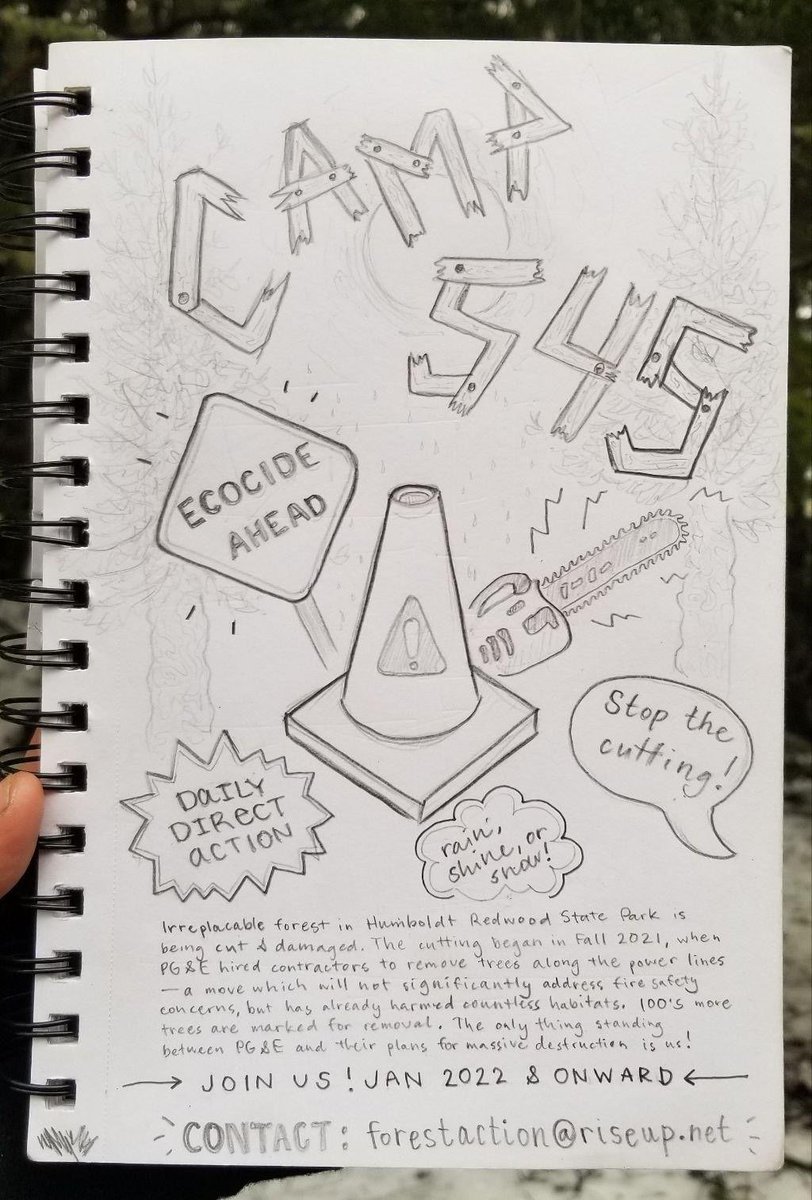 CAMP
545
ECOCIDE
AHEAD
!
Stop the
cutting!
DAILY
DIRECT
ACTION
rain,
shine, or
snow!
Irreplacable forest in Humboldt Redwood State Park is
being cut & damaged. The cutting began in Fall 2021, when
PG&E hired contractors to remove trees along the power lines
— a move which will not significantly address fire safety
concerns, but has already harmed countless habitats. 100's more
trees are marked for removal. The only thing standing
between PG&E and their plans for massive destruction is us!
JOIN US! JAN 2022 & ONWARD
CONTACT: forestaction@riseup.net